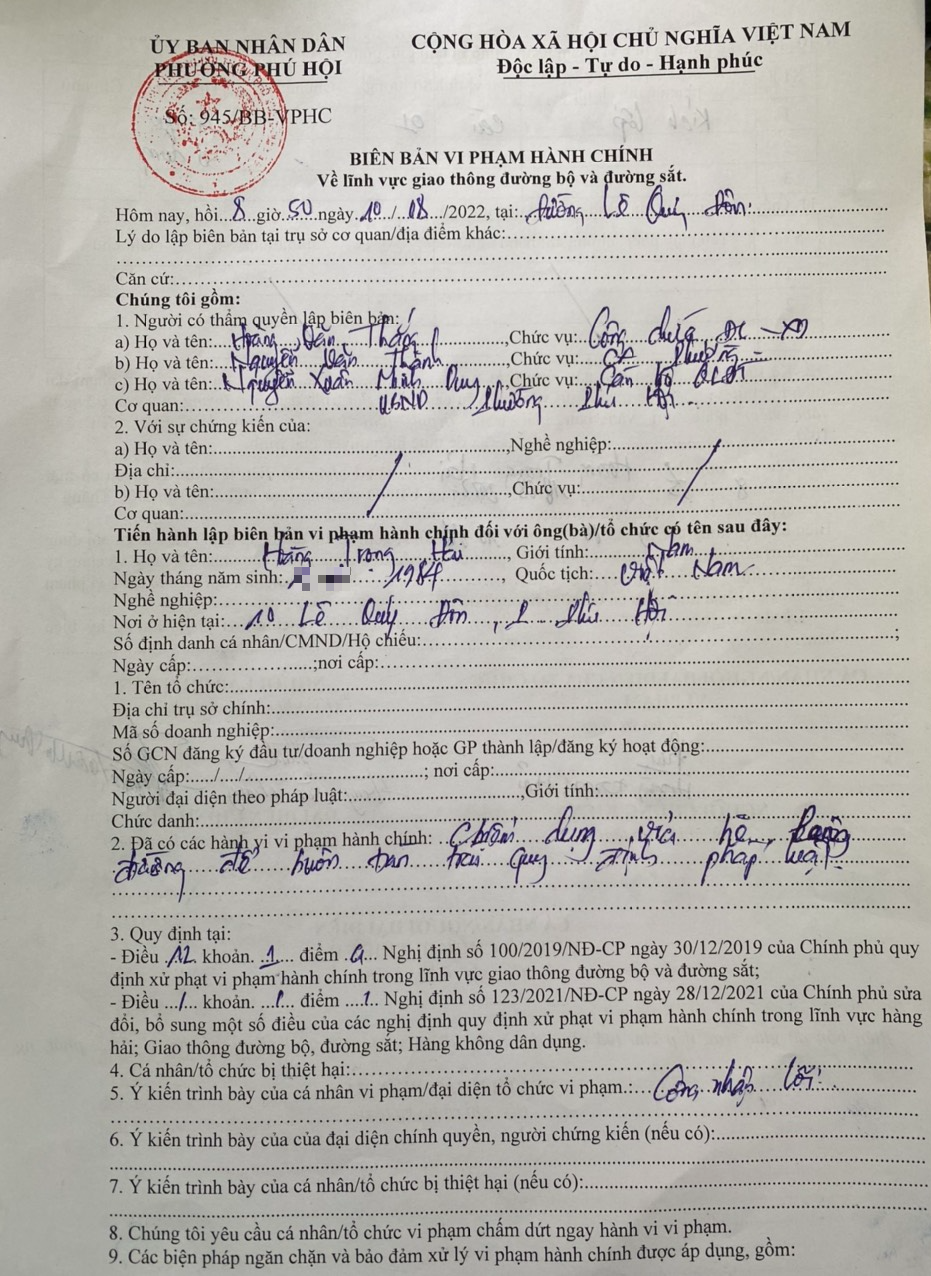 ỦY BAN NHÂN DÂN
PHƯỜNG PHÚ HỘI
CỘNG HÒA XÃ HỘI CHỦ NGHĨA VIỆT NAM
Độc lập - Tự do - Hạnh phúc
Số: 945/BB-VPHC
BIÊN BẢN VI PHẠM HÀNH CHÍNH
Về lĩnh vực giao thông đường bộ và đường sắt.
Hôm nay, hồi...8...giờ.50.ngày.10../..08.../2022, tại:..Đường Lê Quý Đôn.
Lý do lập biên bản tại trụ sở cơ quan/địa điểm khác:
Căn cứ:
Chúng tôi gồm:
1. Người có thẩm quyền lập biên bản:
a) Họ và tên: Hoàng Văn Thắng, Chức vụ: Công chức ĐC - XD
b) Họ và tên: Nguyễn Văn Thành, Chức vụ: CA Phường
c) Họ và tên: Nguyễn Xuân Minh Duy, Chức vụ: Cán bộ QLĐT
Cơ quan: UBND Phường Phú Hội
2. Với sự chứng kiến của:
a) Họ và tên:, Nghề nghiệp:
Địa chỉ:
b) Họ và tên:, Chức vụ:
Cơ quan:
Tiến hành lập biên bản vi phạm hành chính đối với ông(bà)/tổ chức có tên sau đây:
1. Họ và tên: Trọng, Giới tính: Nam
Ngày tháng năm sinh: 1984, Quốc tịch: Việt Nam
Nghề nghiệp:
Nơi ở hiện tại: 10 Lê Quý Đôn, P. Phú Hội
Số định danh cá nhân/CMND/Hộ chiếu:;
Ngày cấp:;nơi cấp:
1. Tên tổ chức:
Địa chỉ trụ sở chính:
Mã số doanh nghiệp:
Số GCN đăng ký đầu tư/doanh nghiệp hoặc GP thành lập/đăng ký hoạt động:
Ngày cấp:..../..../; nơi cấp:
Người đại diện theo pháp luật:, Giới tính:
Chức danh:
2. Đã có các hành vi vi phạm hành chính: Chiếm dụng vỉa hè, lòng
đường để buôn bán trái quy định pháp luật.
3. Quy định tại:
- Điều .12. khoản. .1... điểm .a... Nghị định số 100/2019/NĐ-CP ngày 30/12/2019 của Chính phủ quy
định xử phạt vi phạm hành chính trong lĩnh vực giao thông đường bộ và đường sắt;
- Điều .../... khoản. .../... điểm ..../.. Nghị định số 123/2021/NĐ-CP ngày 28/12/2021 của Chính phủ sửa
đổi, bổ sung một số điều của các nghị định quy định xử phạt vi phạm hành chính trong lĩnh vực hàng
hải; Giao thông đường bộ, đường sắt; Hàng không dân dụng.
4. Cá nhân/tổ chức bị thiệt hại:
5. Ý kiến trình bày của cá nhân vi phạm/đại diện tổ chức vi phạm.: Công nhận lỗi.
6. Ý kiến trình bày của của đại diện chính quyền, người chứng kiến (nếu có):
7. Ý kiến trình bày của cá nhân/tổ chức bị thiệt hại (nếu có):
8. Chúng tôi yêu cầu cá nhân/tổ chức vi phạm chấm dứt ngay hành vi vi phạm.
9. Các biện pháp ngăn chặn và bảo đảm xử lý vi phạm hành chính được áp dụng, gồm: